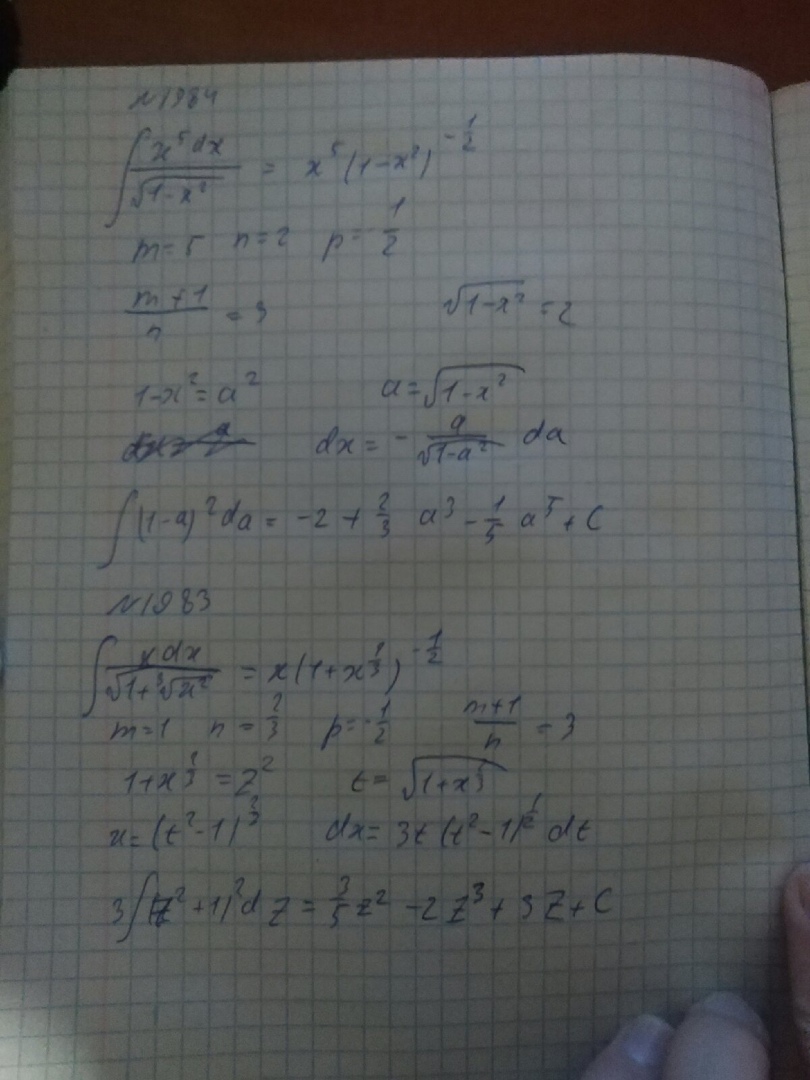 №1984
∫ x⁵dx / √(1-x²) = x⁵(1-x²)^(-1/2)
m=5 n=2 p=-1/2
(m+1)/n = 3 √(1-x²) = z
1-x² = a² a=√(1-x²)
dx = - a/√(1-a²) da
∫(1-a)²da = -2 + 2/3 a³ - 1/5 a⁵ + C
№1983
∫ xdx / √(1+³√x²) = x(1+x^(2/3))^(-1/2)
m=1 n=2/3 p=-1/2 (m+1)/n = 3
1+x^(2/3) = z² t=√(1+x^(2/3))
x=(t²-1)^(3/2) dx= 3t(t²-1)^(1/2) dt
3∫(z²+1)²dz = 3/5 z² - 2z³ + 3z + C